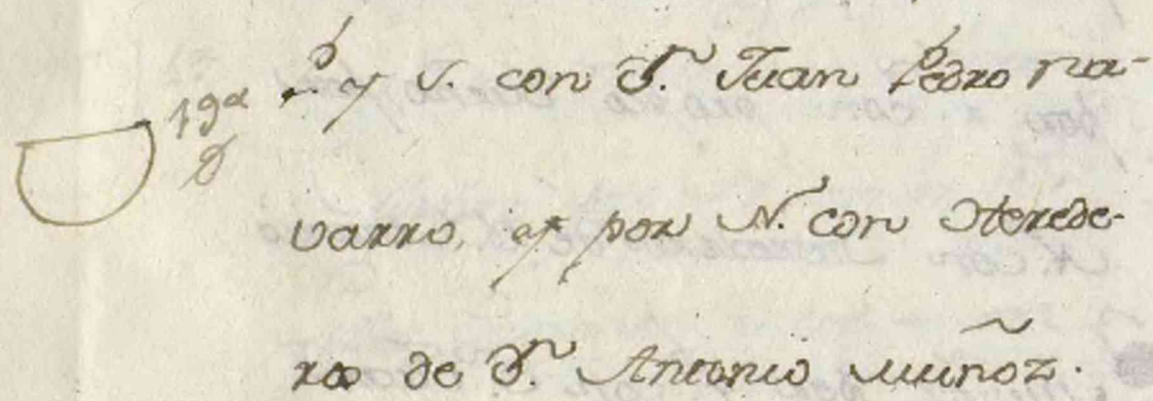 P. y S. con D.n Juan Pedro Na-
19a
varro, y por N. con Herede-
ros de D.n Antonio Muñoz.